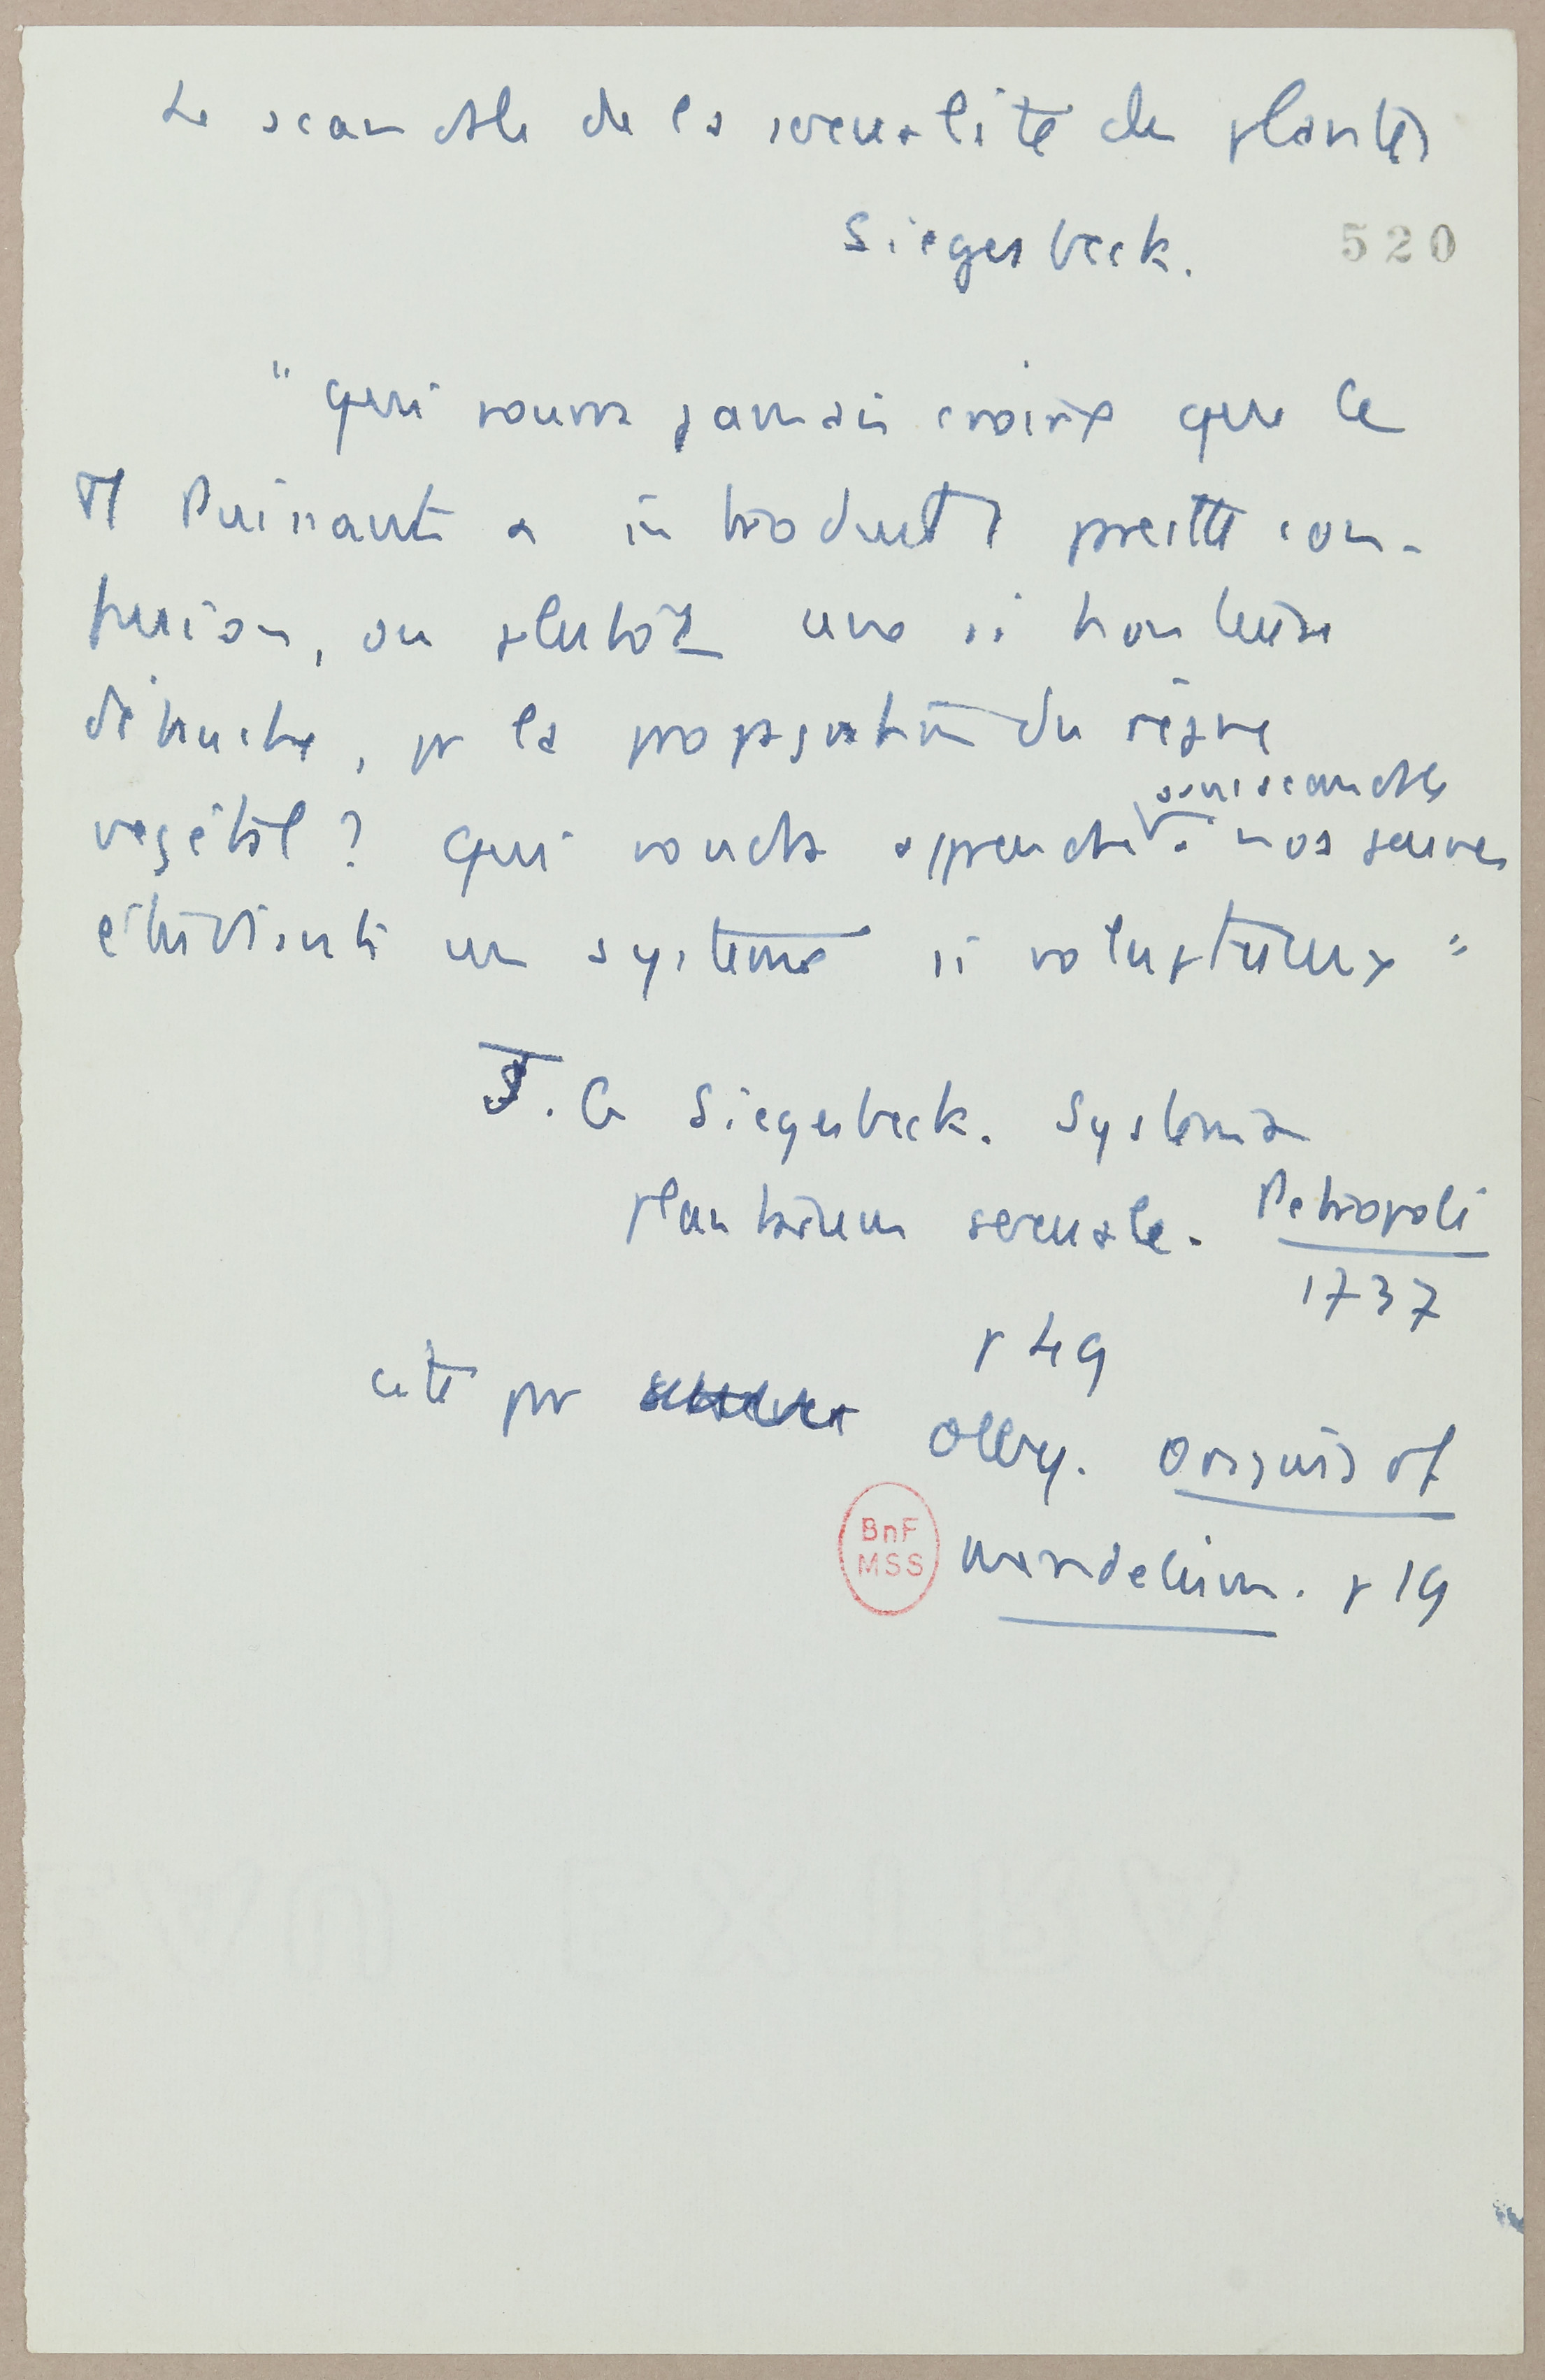 Le scandale de la sexualité des plantes
Siegesbeck.
520
"Qui pourra jamais croire que le
Tt Puissant a introduit pareille con-
fusion, ou plutôt une si honteuse
débauche, pr la propagation du règne
végétal? Qui voudra apprendre sans scandale à nos jeunes
étudiants un système si voluptueux"
J. G Siegesbeck. Systema
plantarum sexuale. Petropoli
1737
p 49
cité par Olby. Origins of
BnF
MSS
mendelism. p 19